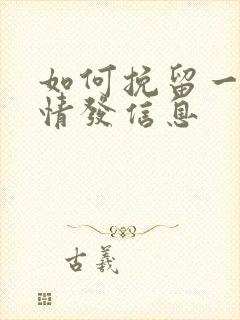 如何挽留一
情發信息
古義